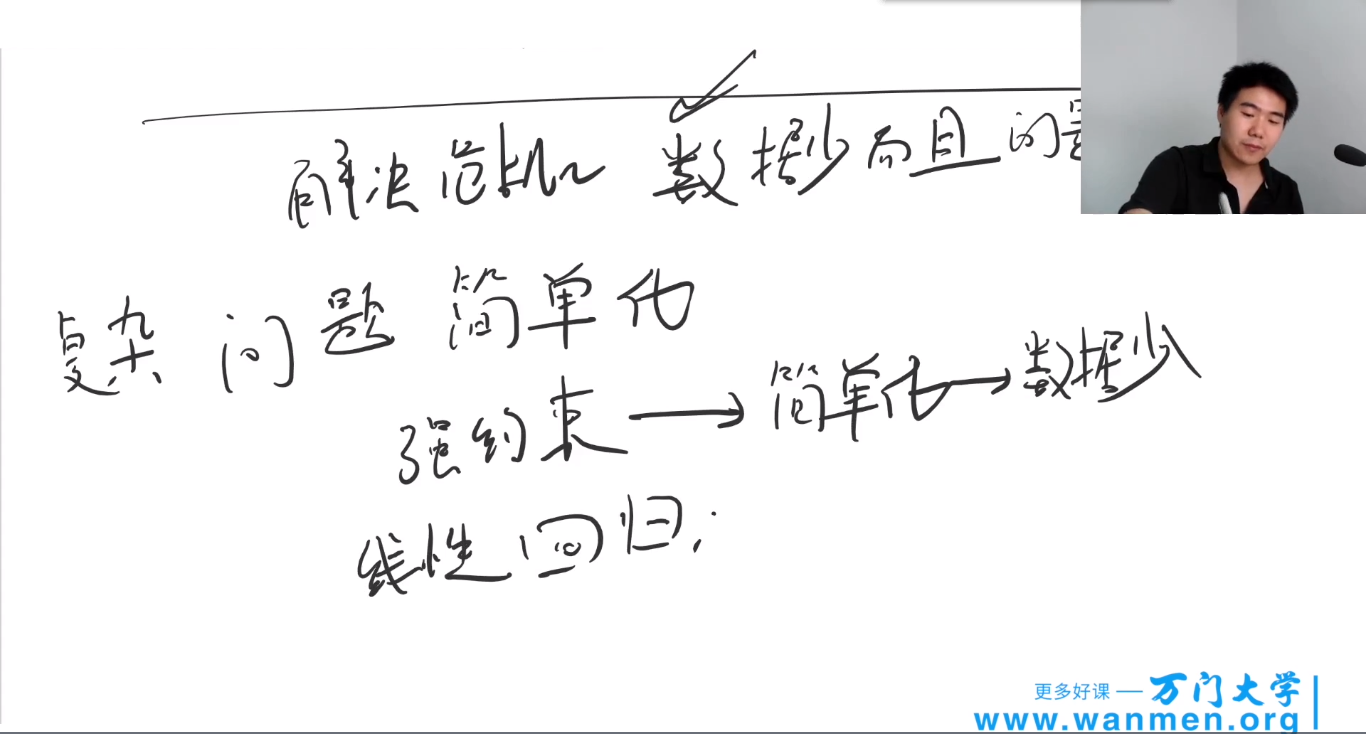 解决危机 数据少而且问题
复杂问题简单化
强约束 → 简单化 → 数据少
线性回归;
更多好课 — 万门大学
www.wanmen.org